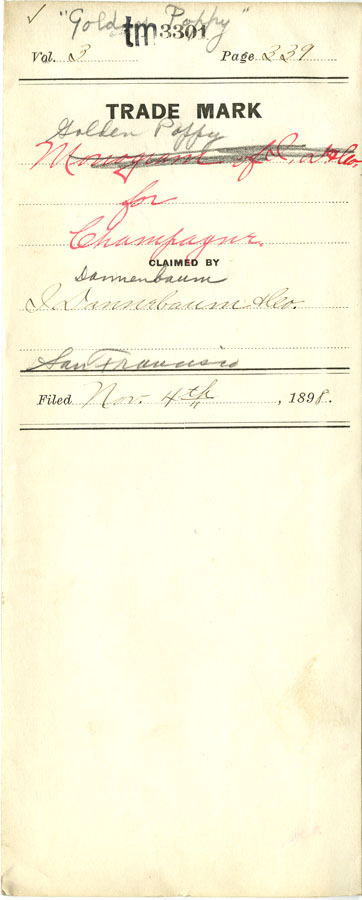 ✓ "Golden Poppy"
tm3301
Vol. 3 Page 339
TRADE MARK
Golden Poppy
Monogram of D. & Co.
for
Champagne.
CLAIMED BY
Dannenbaum
Dannerbaum & Co.
San Francisco
Filed Nov. 4th, 1898.